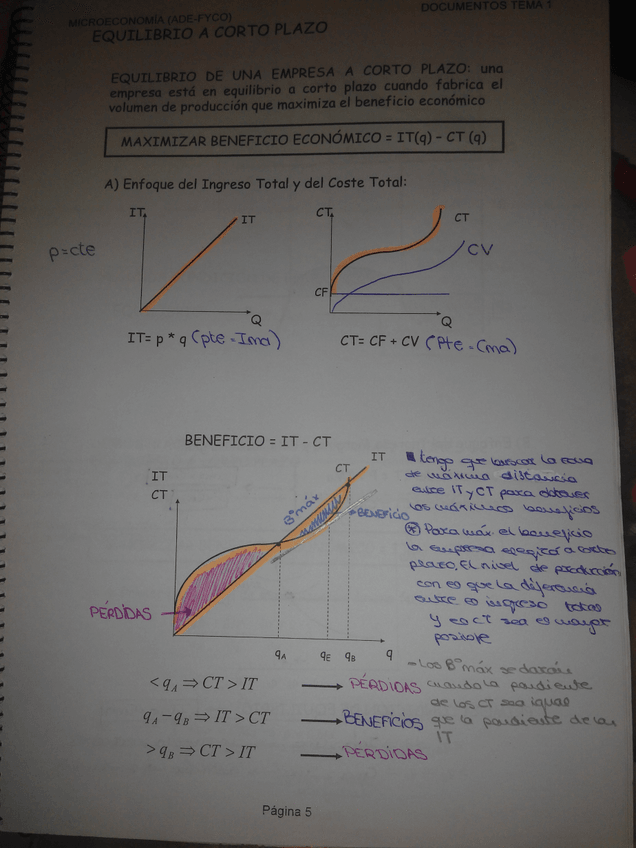 MICROECONOMÍA (ADE-FYCO)
DOCUMENTOS TEMA 1
EQUILIBRIO A CORTO PLAZO
EQUILIBRIO DE UNA EMPRESA A CORTO PLAZO: una
empresa está en equilibrio a corto plazo cuando fabrica el
volumen de producción que maximiza el beneficio económico
MAXIMIZAR BENEFICIO ECONÓMICO = IT(q) – CT (q)
A) Enfoque del Ingreso Total y del Coste Total:
p=cte
IT
IT
Q
IT= p * q (pte = Ima)
CT
CT
CV
CF
Q
CT= CF + CV (Pte = Cma)
BENEFICIO = IT - CT
IT
CT
IT
CT
Bº máx
BENEFICIO
PÉRDIDAS
qA
qE
qB
q
tengo que buscar la zona
de máxima distancia
entre IT y CT para obtener
los máximos beneficios
* Para máx el beneficio
la empresa elegirá a corto
plazo, el nivel de producción
con el que la diferencia
entre el ingreso total
y el CT sea el mayor
posible
- Los Bº máx se darán
cuando la pendiente
de los CT sea igual
que la pendiente de los
IT
< qA ⇒ CT > IT → PÉRDIDAS
qA – qB ⇒ IT > CT → BENEFICIOS
> qB ⇒ CT > IT → PÉRDIDAS
Página 5